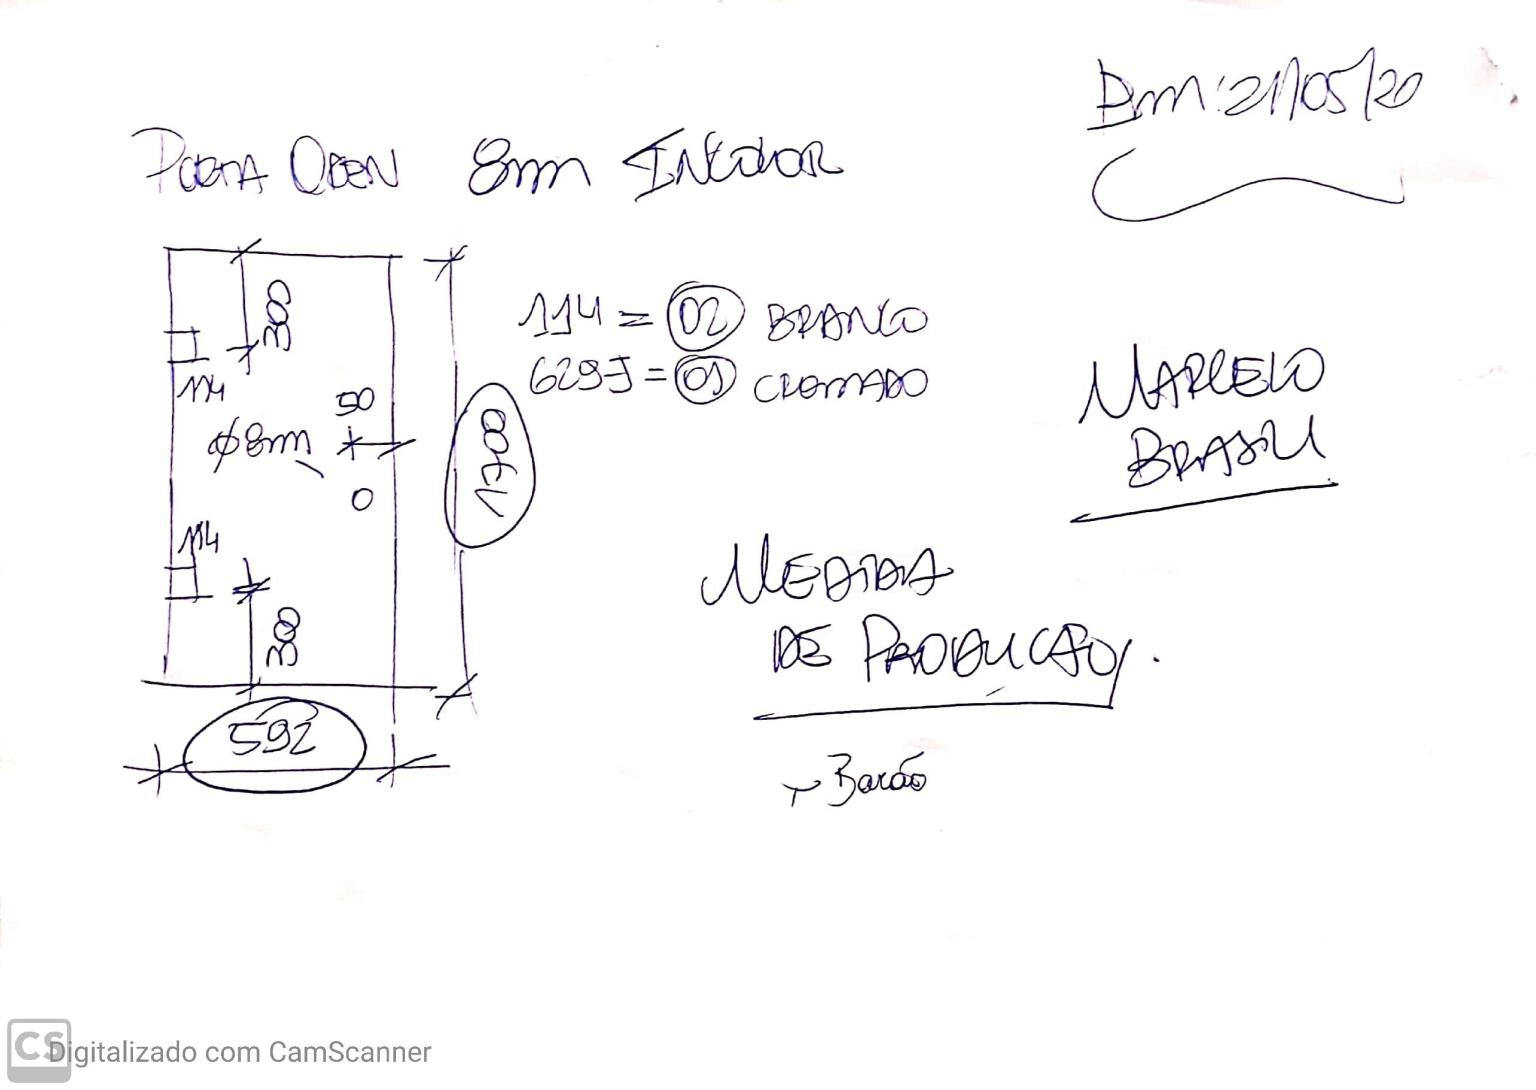 Dm: 21/05/20
PORTA OPEN 8mm INCOLOR
300
114
50
Ø8mm
0
114
300
1700
592
114 = 02 BRANCO
629J = 01 CROMADO
MARCELO
BRASIL
MEDIDA
DE PRODUÇÃO.
Barão
CS Digitalizado com CamScanner